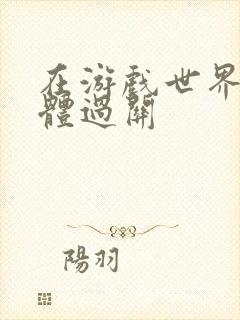 在游戲世界
體過關
陽羽